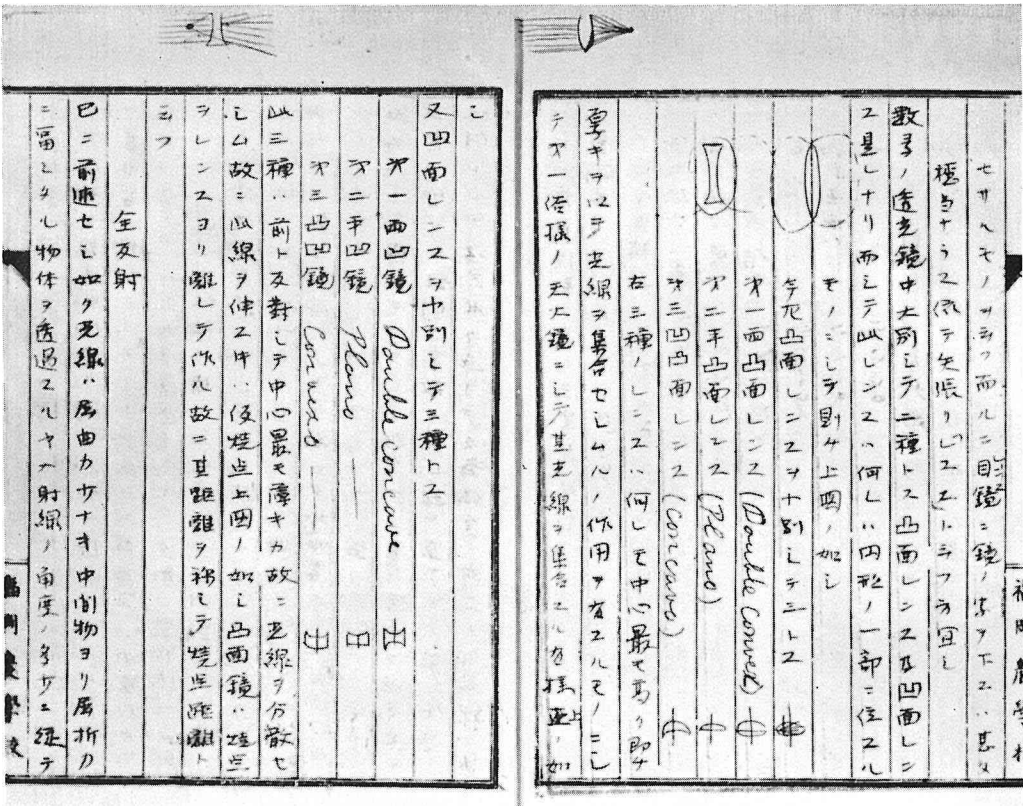 セサルモノヲ云フ而ルニ目鏡ニ鏡ノ字ヲ下スハ甚タ
穏当ナラス依テ矢張リレンズト云フ方宜シ
数多ノ透光鏡中大別シテ二種トス凸面レンス及凹面レン
ス是レナリ而シテ此レンスハ何レハ円形ノ一部ニ位スル
モノニシテ則チ上図ノ如シ
今凡凸面レンスヲ大別シテ三トス
第一両凸面レンス (Double Convex)
第二平凸面レンス (Plano)
第三凹凸面レンス (Concavo)
右三種ノレンスハ何レモ中心最モ厚ク即チ
厚キヲ以テ光線ヲ集合セシムルノ作用ヲ有スルモノニシ
テ一倍様ノ大鏡ニシテ其光線ヲ集合スル有様上ノ如
シ
又凹面レンスヲ大別シテ三種トス
第一両凹鏡 Double concave
第二平凹鏡 Plano ——
第三凸凹鏡 Convexo ——
此三種ハ前ト反対シテ中心最モ薄キカ故ニ光線ヲ分散セ
シム故ニ此線ヲ伸スキハ仮焼点上図ノ如シ凸面鏡ハ焼点
ヲレンスヨリ離レテ作ル故ニ其距離ヲ称シテ焼点距離ト
云フ
全反射
已ニ前述セシ如ク光線ハ屈曲力少ナキ中間物ヨリ屈折力
ニ富ミタル物体ヲ透過スルヤ射線ノ角度ノ多少ニ従テ
福岡農学校
福岡農學校